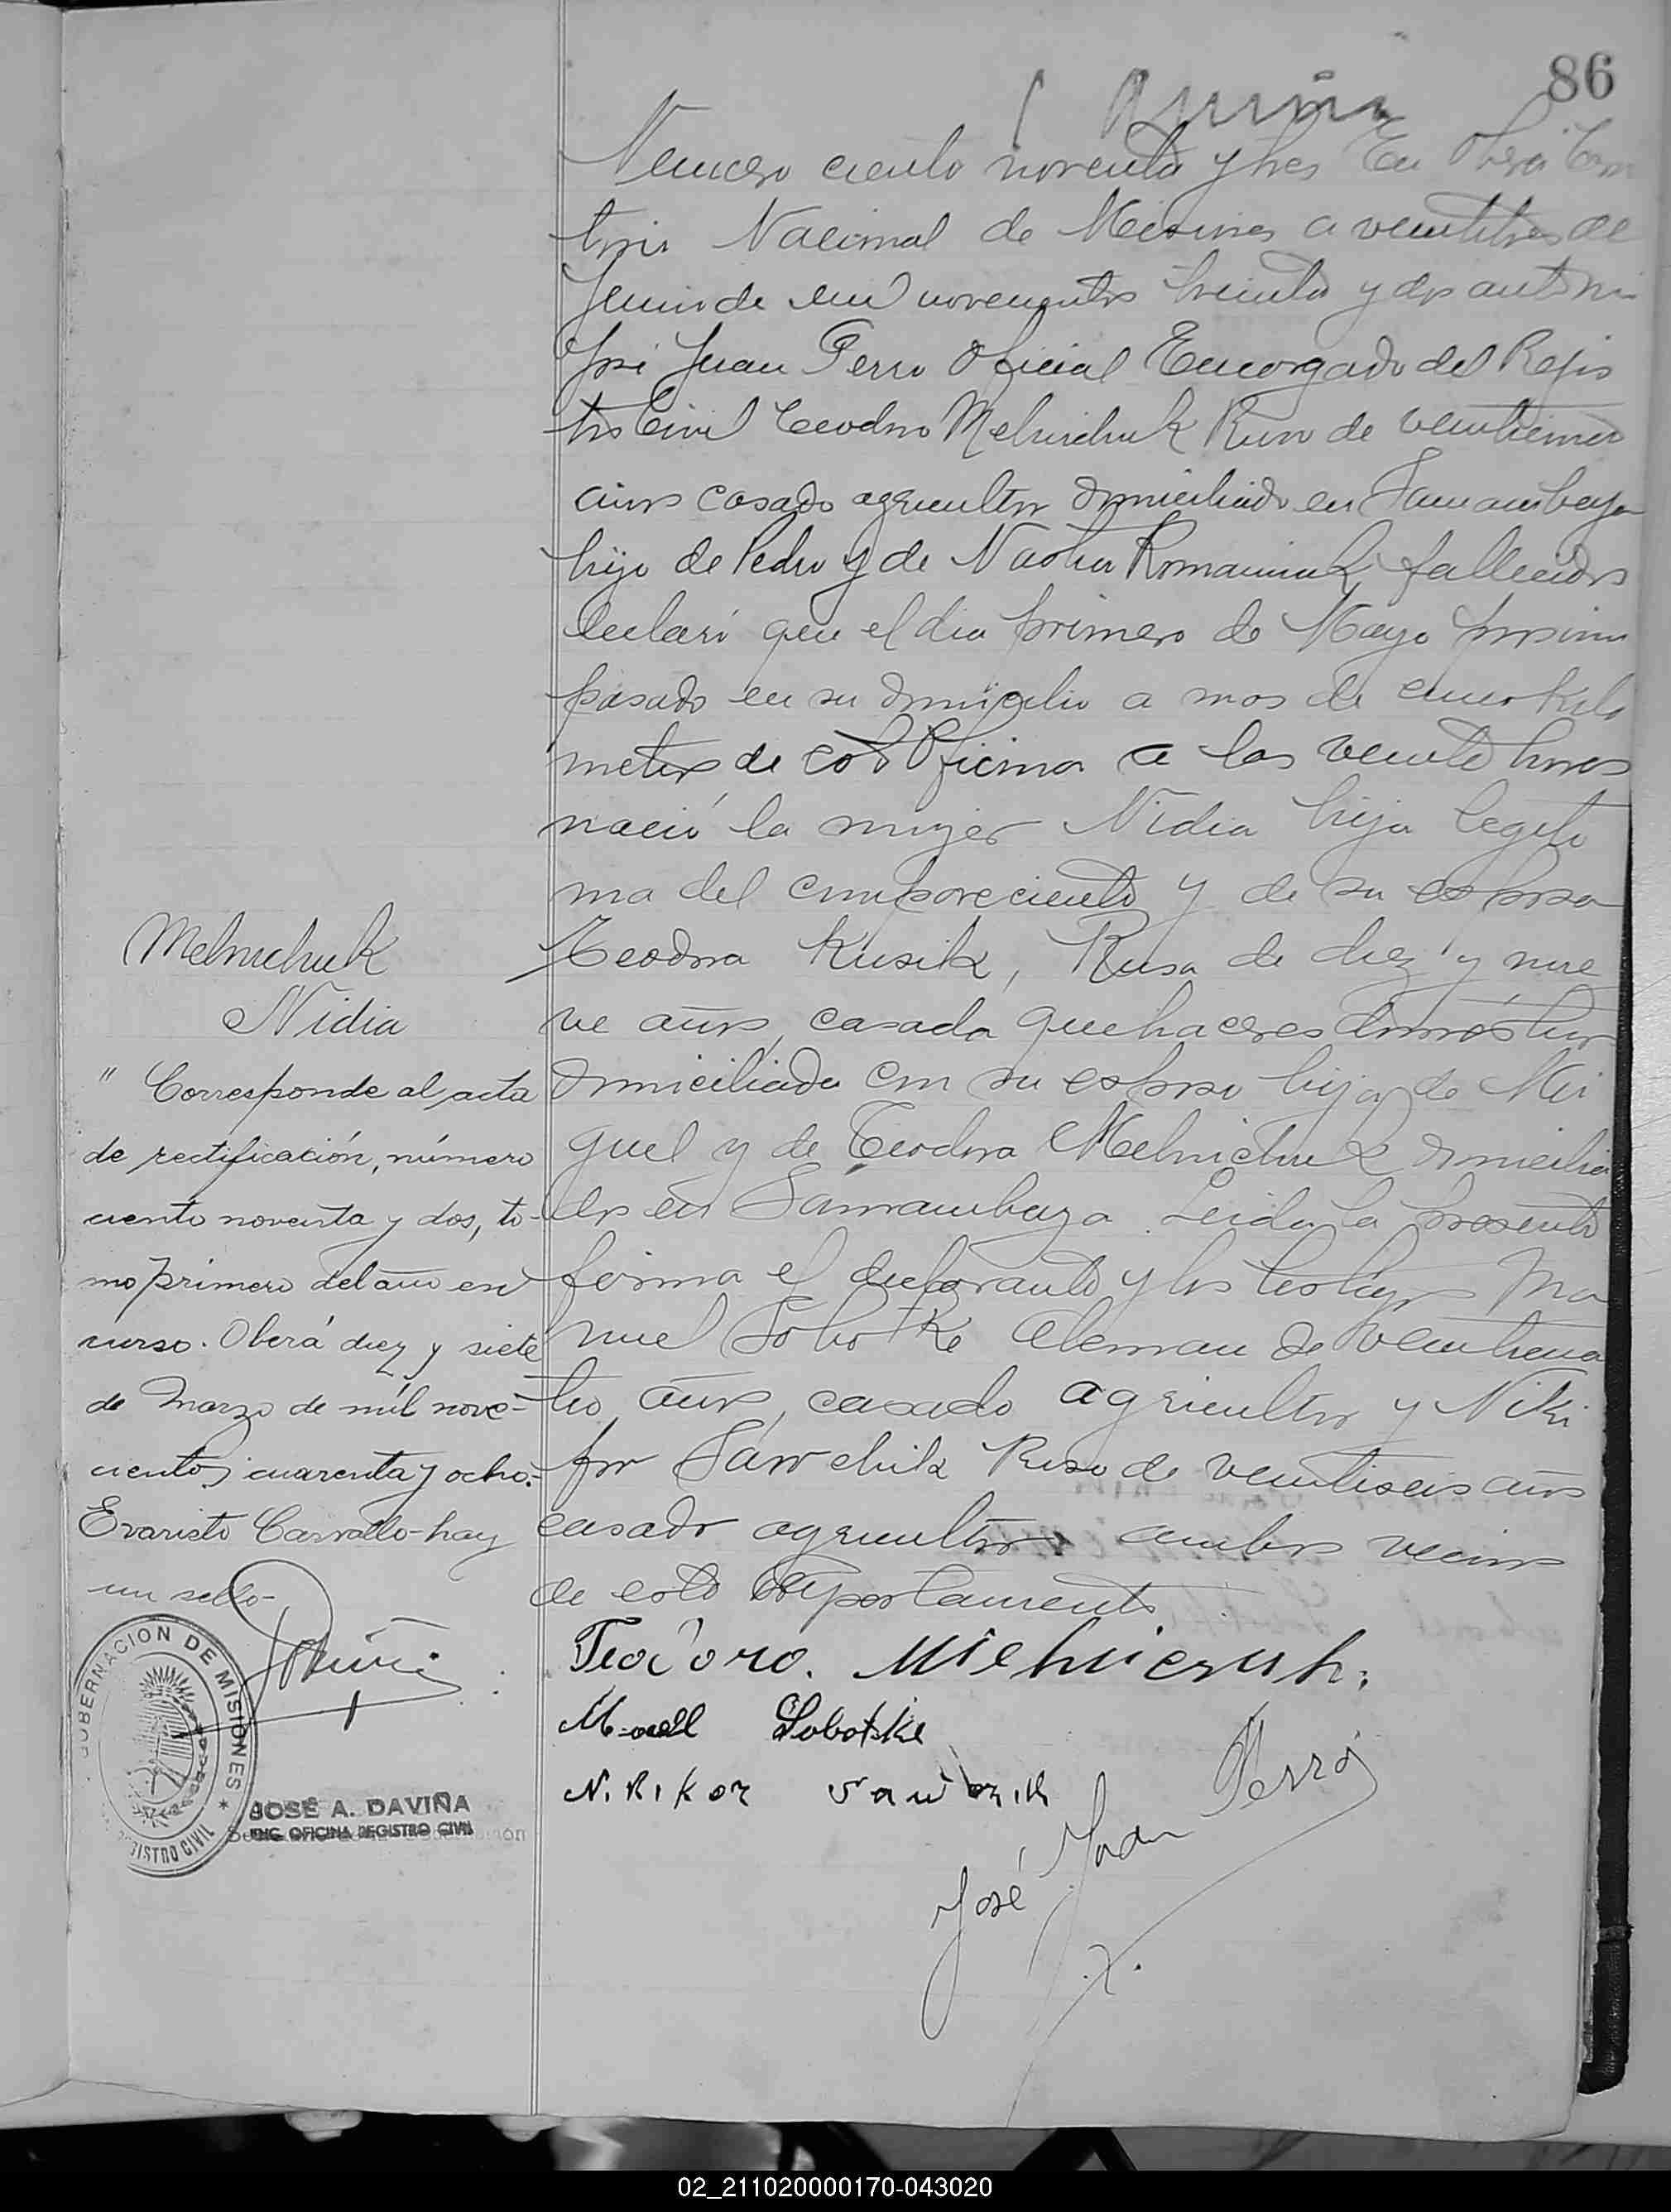 86
Numero ciento noventa y tres En Oberá Terri
torio Nacional de Misiones a veintitres de
Junio de mil novecientos treinta y dos ante mi
José Juan Perro Oficial Encargado del Rejis
tro Civil Teodoro Melnichuk Ruso de
años casado agricultor domiciliado en Samambaya
hijo de Pedro y de Nastia Romaniuk fallecidos
declaró que el dia primero de Mayo proximo
pasado en su domicilio a mas de cinco kilo
metros de esta Oficina a las veinte horas
nació la mujer Nidia hija legiti
ma del compareciente y de su esposa
Teodora Kusik, Rusa de diez y nue
ve años, casada quehaceres domésticos
domiciliada con su esposo hija de Mi
guel y de Teodora Melnichuk domicilia
dos en Samambaya. Leida la presente
firma el declarante y los testigos Ma
nuel Sobotke Aleman de
años, casado agricultor y Niki
for Sawchik Ruso de veintiseis años
casado agricultor ambos vecinos
de este departamento
Teodoro. Mielniczuk.
Sobotke
José Juan Perró
Melnichuk
Nidia
" Corresponde al acta
de rectificación, número
ciento noventa y dos, to-
mo primero del año en
curso. Oberá diez y siete
de Marzo de mil nove-
cientos cuarenta y ocho.-
Evaristo Carvallo - hay
un sello -
GOBERNACION DE MISIONES
REGISTRO CIVIL
JOSÉ A. DAVIÑA
ENC. OFICINA REGISTRO CIVIL
02_211020000170-043020